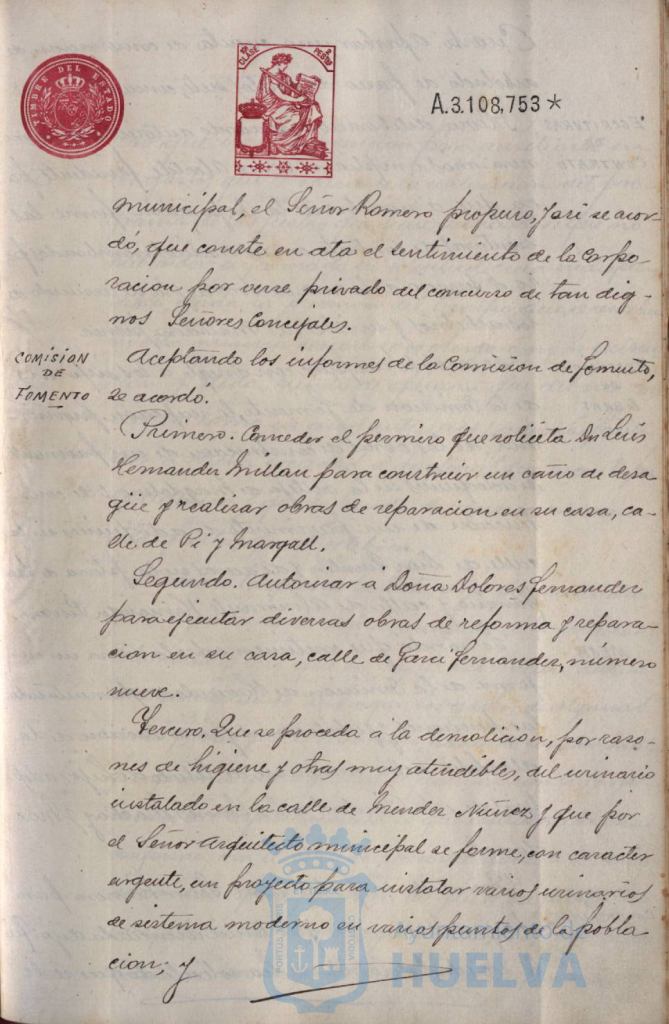 TIMBRE DEL ESTADO
10ª CLASE 2 PESETAS
A.3.108,753*
municipal, el Señor Romero propuso, y asi se acor-
dó, que conste en ata el sentimiento de la Corpo-
racion por verse privado del concurso de tan dig-
nos Señores Concejales.
COMISION
DE
FOMENTO
Aceptando los informes de la Comision de fomento,
se acordó.
Primero. Conceder el permiso que solicita Dn Luis
Hernandez Millan para construir un caño de desa
güe y realizar obras de reparacion en su casa, ca-
lle de Pi y Margall.
Segundo. Autorizar á Doña Dolores Fernandez
para ejecutar diversas obras de reforma y repara-
cion en su casa, calle de Garci Fernandez, número
nueve.
Tercero. Que se proceda á la demolicion, por razo-
nes de higiene y otras muy atendibles, del urinario
instalado en la calle de Mendez Nuñez y que por
el Señor Arquitecto municipal se forme, con caracter
urgente, un proyecto para instalar varios urinarios
de sistema moderno en varios puntos de la pobla
cion; y
Ayuntamiento
HUELVA
PORTUS
CUSTODIA